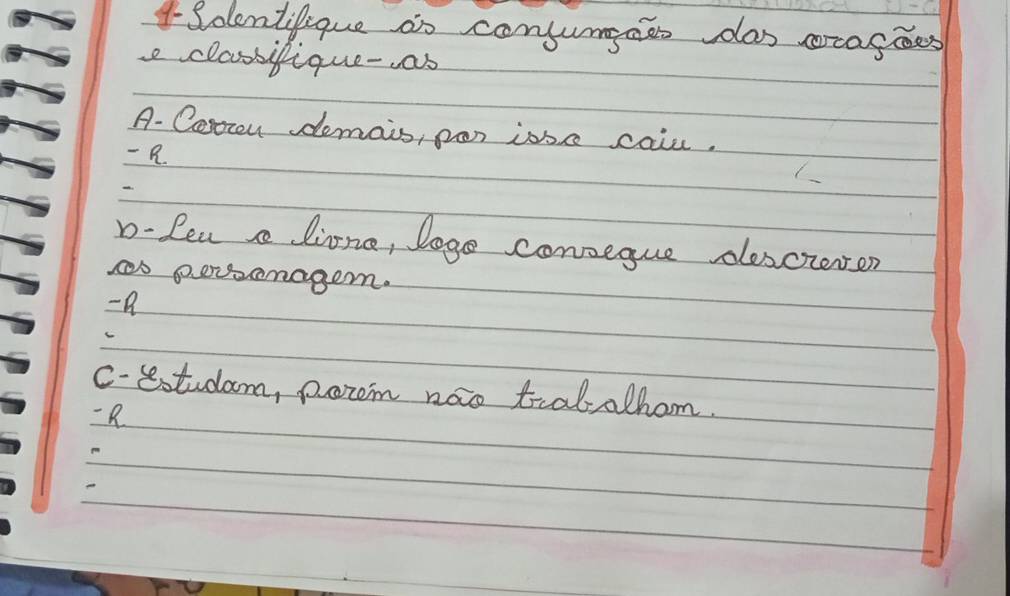 1-Identifique as conjunções das orações
e classifique-as
A-Correu demais, por isso caiu.
-R
-
b-Leu o livro, logo consegue descrever
os personagem.
-R
-
C-Estudam, porém não trabalham.
-R
-
-